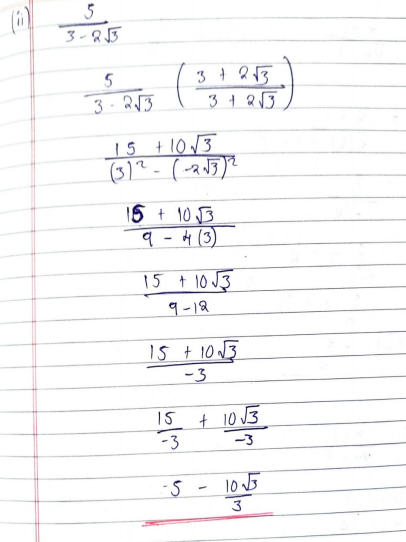 (ii) 5/(3 - 2√3)
5/(3 - 2√3) ((3 + 2√3)/(3 + 2√3))
(15 + 10√3)/((3)² - (-2√3)²)
(15 + 10√3)/(9 - 4(3))
(15 + 10√3)/(9 - 12)
(15 + 10√3)/(-3)
15/(-3) + 10√3/(-3)
-5 - 10√3/3